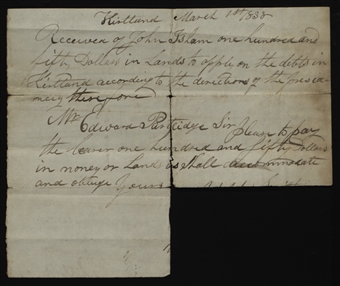 Kirtland March 1st 1838
Received of John Isham one hundred and
fifty Dollars in Lands to apply on the debts in
Kirtland according to the directions of the
therefore
Mr Edward Partridge Sir please to pay
the bearer one hundred and fifty Dollars
in money or Lands as shall accommodate
and oblige Yours